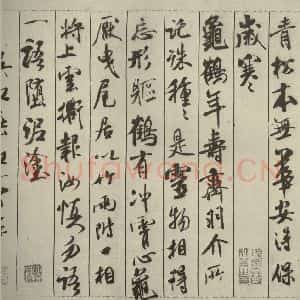 青松本無華安得保
歲寒
龜鶴年壽齊羽介所
託殊種〻是靈物相得
忘形軀鶴有沖霄心龜
厭曳尾居以竹兩附口相
將上雲衢報汝慎勿語
一語墮泥塗
Shufawang.CN